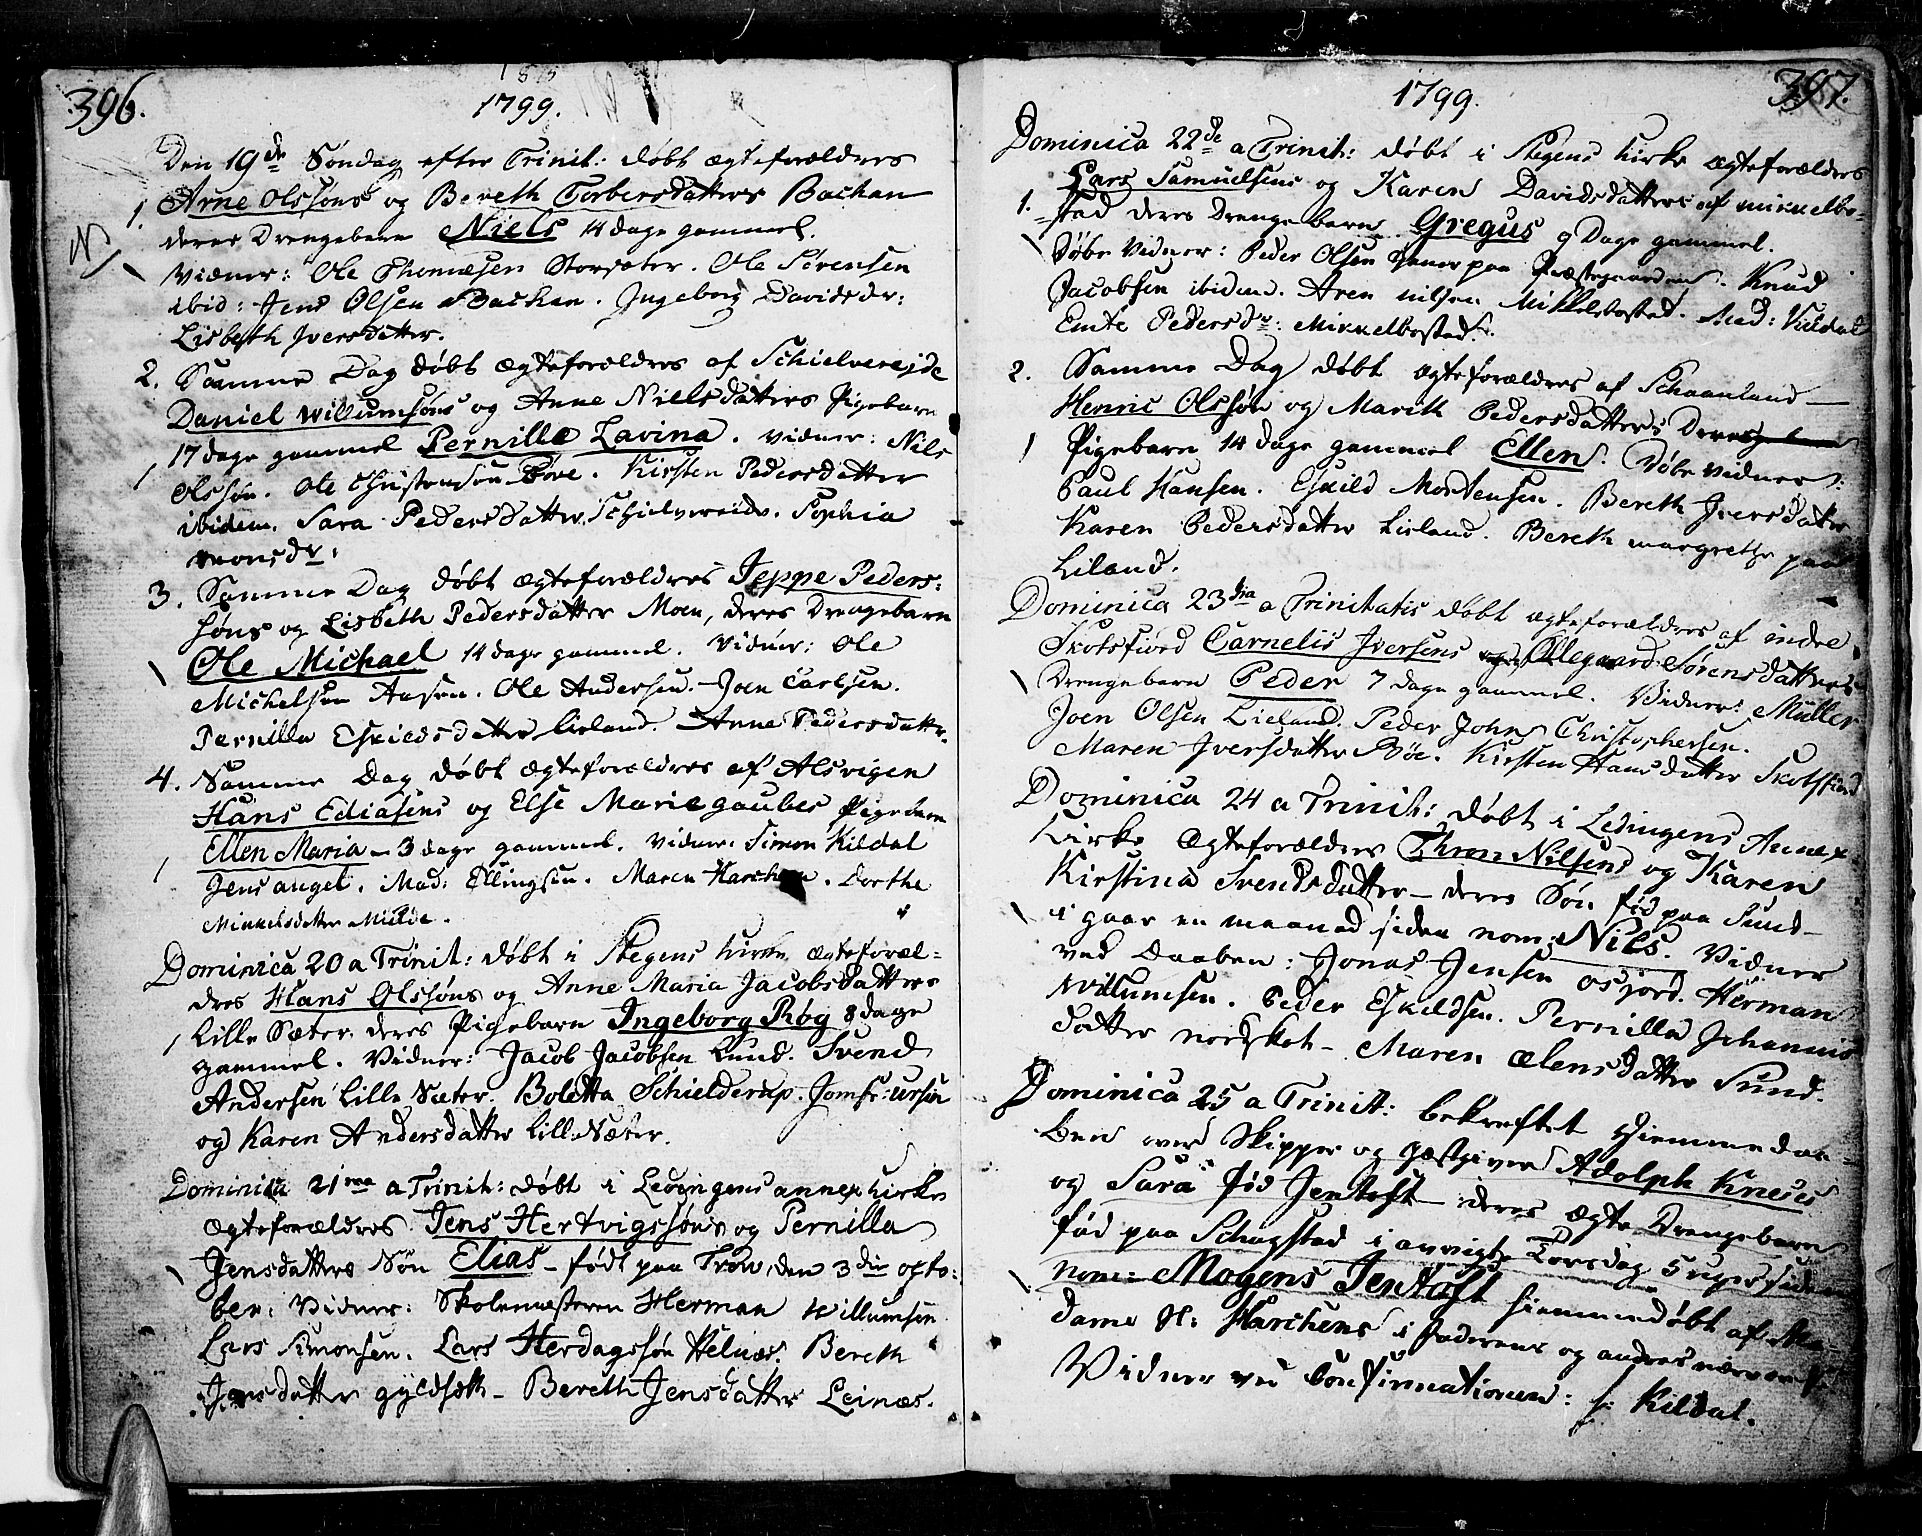 396.
1799.
Den 19de Søndag efter Trinit: døbt ægteforældres
1. Arne Olssøns og Bereth Torbersdatters Bachan
deres Drengebarn Niels 14 dage gammel.
Vidner: Ole Thomæsen Storsæter. Ole Sørensen
ibid: Jens Olsen Bachan. Ingeborg Davidsdr:
Lisbeth Iversdatter.
2. Samme Dag døbt ægteforældres af Schielvereide
Daniel Willumsøns og Anne Nielsdatters Pigebarn
17 dage gammel Pernilla Lavina. Vidner: Nils
Olssøn. Ole Christensøn Bøe. Kirsten Pedersdatter
ibidem. Sara Pedersdatter Schielvereide. Sophia
Monsdr:
3. Samme Dag døbt ægteforældres Jeppe Peders:
søns og Lisbeth Pedersdatter Moen, deres Drengebarn
Ole Michael 14 dage gammel. Vidner: Ole
Michelsen Aasen. Ole Andersen. Joen Carlsen.
Pernilla Eskildsdatter Lieland. Anne Pedersdattr.
4. Samme Dag døbt ægteforældres af Alsvigen
Hans Ediasens og Else Marie Gaubes Pigebarn
Ellen Maria - 3 dage gammel. Vidner: Simon Kildal
Jens Angel. Mad: Ellingsen. Maren Harchen. Dorthe
Mikkelsdatter Mielde.
Dominica 20 a Trinit: døbt i Stegens Kirke ægteforæl-
dres Hans Olssøns og Anne Maria Jacobsdatters
Lille Sæter deres Pigebarn Ingeborg Røg 8 dage
gammel. Vidner: Jacob Jacobsen Lund. Svend
Andersen Lille Sæter. Boletta Schielderup. Jomfr: Ursin
og Karen Andersdatter Lille Sæter.
Dominica 21ma a Trinit: døbt i Ledingens annex Kirke
Ægteforældres Jens Hertvigssøns og Pernilla
Jensdatters Søn Elias - født paa Trøe, den 3die octo:
ber. Vidner: Skolemesteren Herman Willumsen
Lars Simonsen. Lars Herdagssøn Helnæs. Bereth
Jensdatter Gyldseth - Bereth Jensdatter Leinæs.
397.
1799.
Dominica 22de a Trinit: døbt i Stegens Kirke ægteforældres
Lars Samuelsens og Karen Davidsdatters af Mikkelbo-
1. stad deres Drengebarn Gregus 9 Dage gammel.
Døbe Vidner: Peder Olsen paa Præstegaarden. Knud
Jacobsen ibidem. Aren Nilsen Mikkelbostad. Mad: Kildal
Emte Pedersdr: Mikkelbostad.
2. Samme Dag døbt ægteforældres af Schaanland
Henric Olssøn og Marith Pedersdatters Deres
Pigebarn 14 dage gammel Ellen. Døbe Vidner:
Paul Hansen. Eskild Mortensen. Bereth Iversdatter
Karen Pedersdatter Lieland. Bereth Margrethe paa
Liland.
Dominica 23tia a Trinitatis døbt ægteforældres af indre
Skotsfiord Carnelis Iversens og Ollegaard Sørensdatters
Drengebarn Peder 7 dage gammel. Vidner: Müller
Joen Olsen Lieland. Peder John Christophersen.
Maren Iversdatter Bøe. Kirsten Hansdatter Skotsfiord
Dominica 24 a Trinit: døbt i Ledingens Annex
Kirke Ægteforældres Thron Nilsens og Karen
Kirstina Svendsdatter - deres Søn fød paa Sund
i gaar en maaned siden nom: Nils. Vidner
ved Daaben: Jonas Jensen Osjord. Herman
Willumsen. Peder Eskildsen. Pernilla Johannis
datter Nordsket - Maren Ælensdatter Sund.
Dominica 25 a Trinit: bekreftet Hiemmedaa-
ben over Skipper og Giæstgiver Adolph Kness
og Sara fød Jentoft - deres Ægte Drengebarn
fød paa Schogstad i avrigte Torsdag 5 uger siden
nom: Mogens Jentoft hiemmedøbt af Ma-
dame H: Harchens i Faderens og andres nærværelse
Vidner ved Confirmationen: S: Kildal.